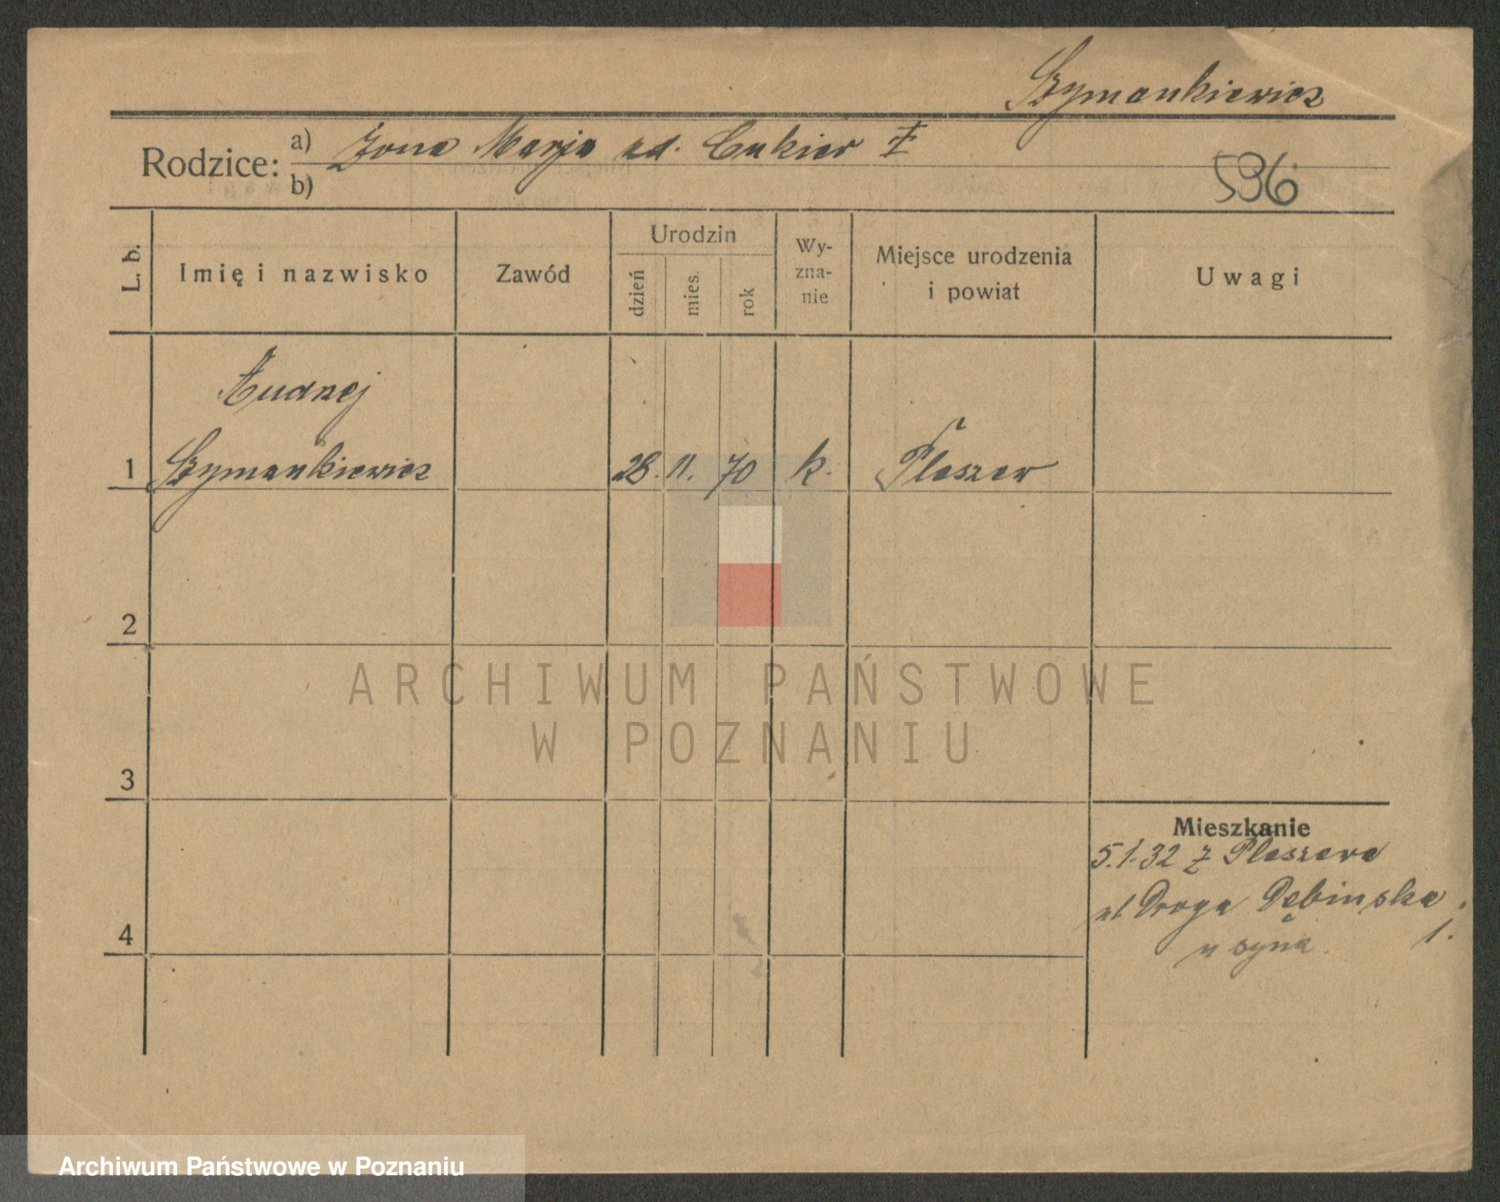 Szymankiewicz
Rodzice:
a) Żona Marja ud. Cukier ‡
b)
596
L. b.
Imię i nazwisko
Zawód
Urodzin
dzień
mies.
rok
Wy-
zna-
nie
Miejsce urodzenia
i powiat
Uwagi
Andrzej
1 Szymankiewicz 28. 11. 70 k. Pleszew
2
3
4
Mieszkanie
5.1.32 z Pleszewa
ul Droga Dębinska
u syna 1.
ARCHIWUM PAŃSTWOWE
W POZNANIU
Archiwum Państwowe w Poznaniu